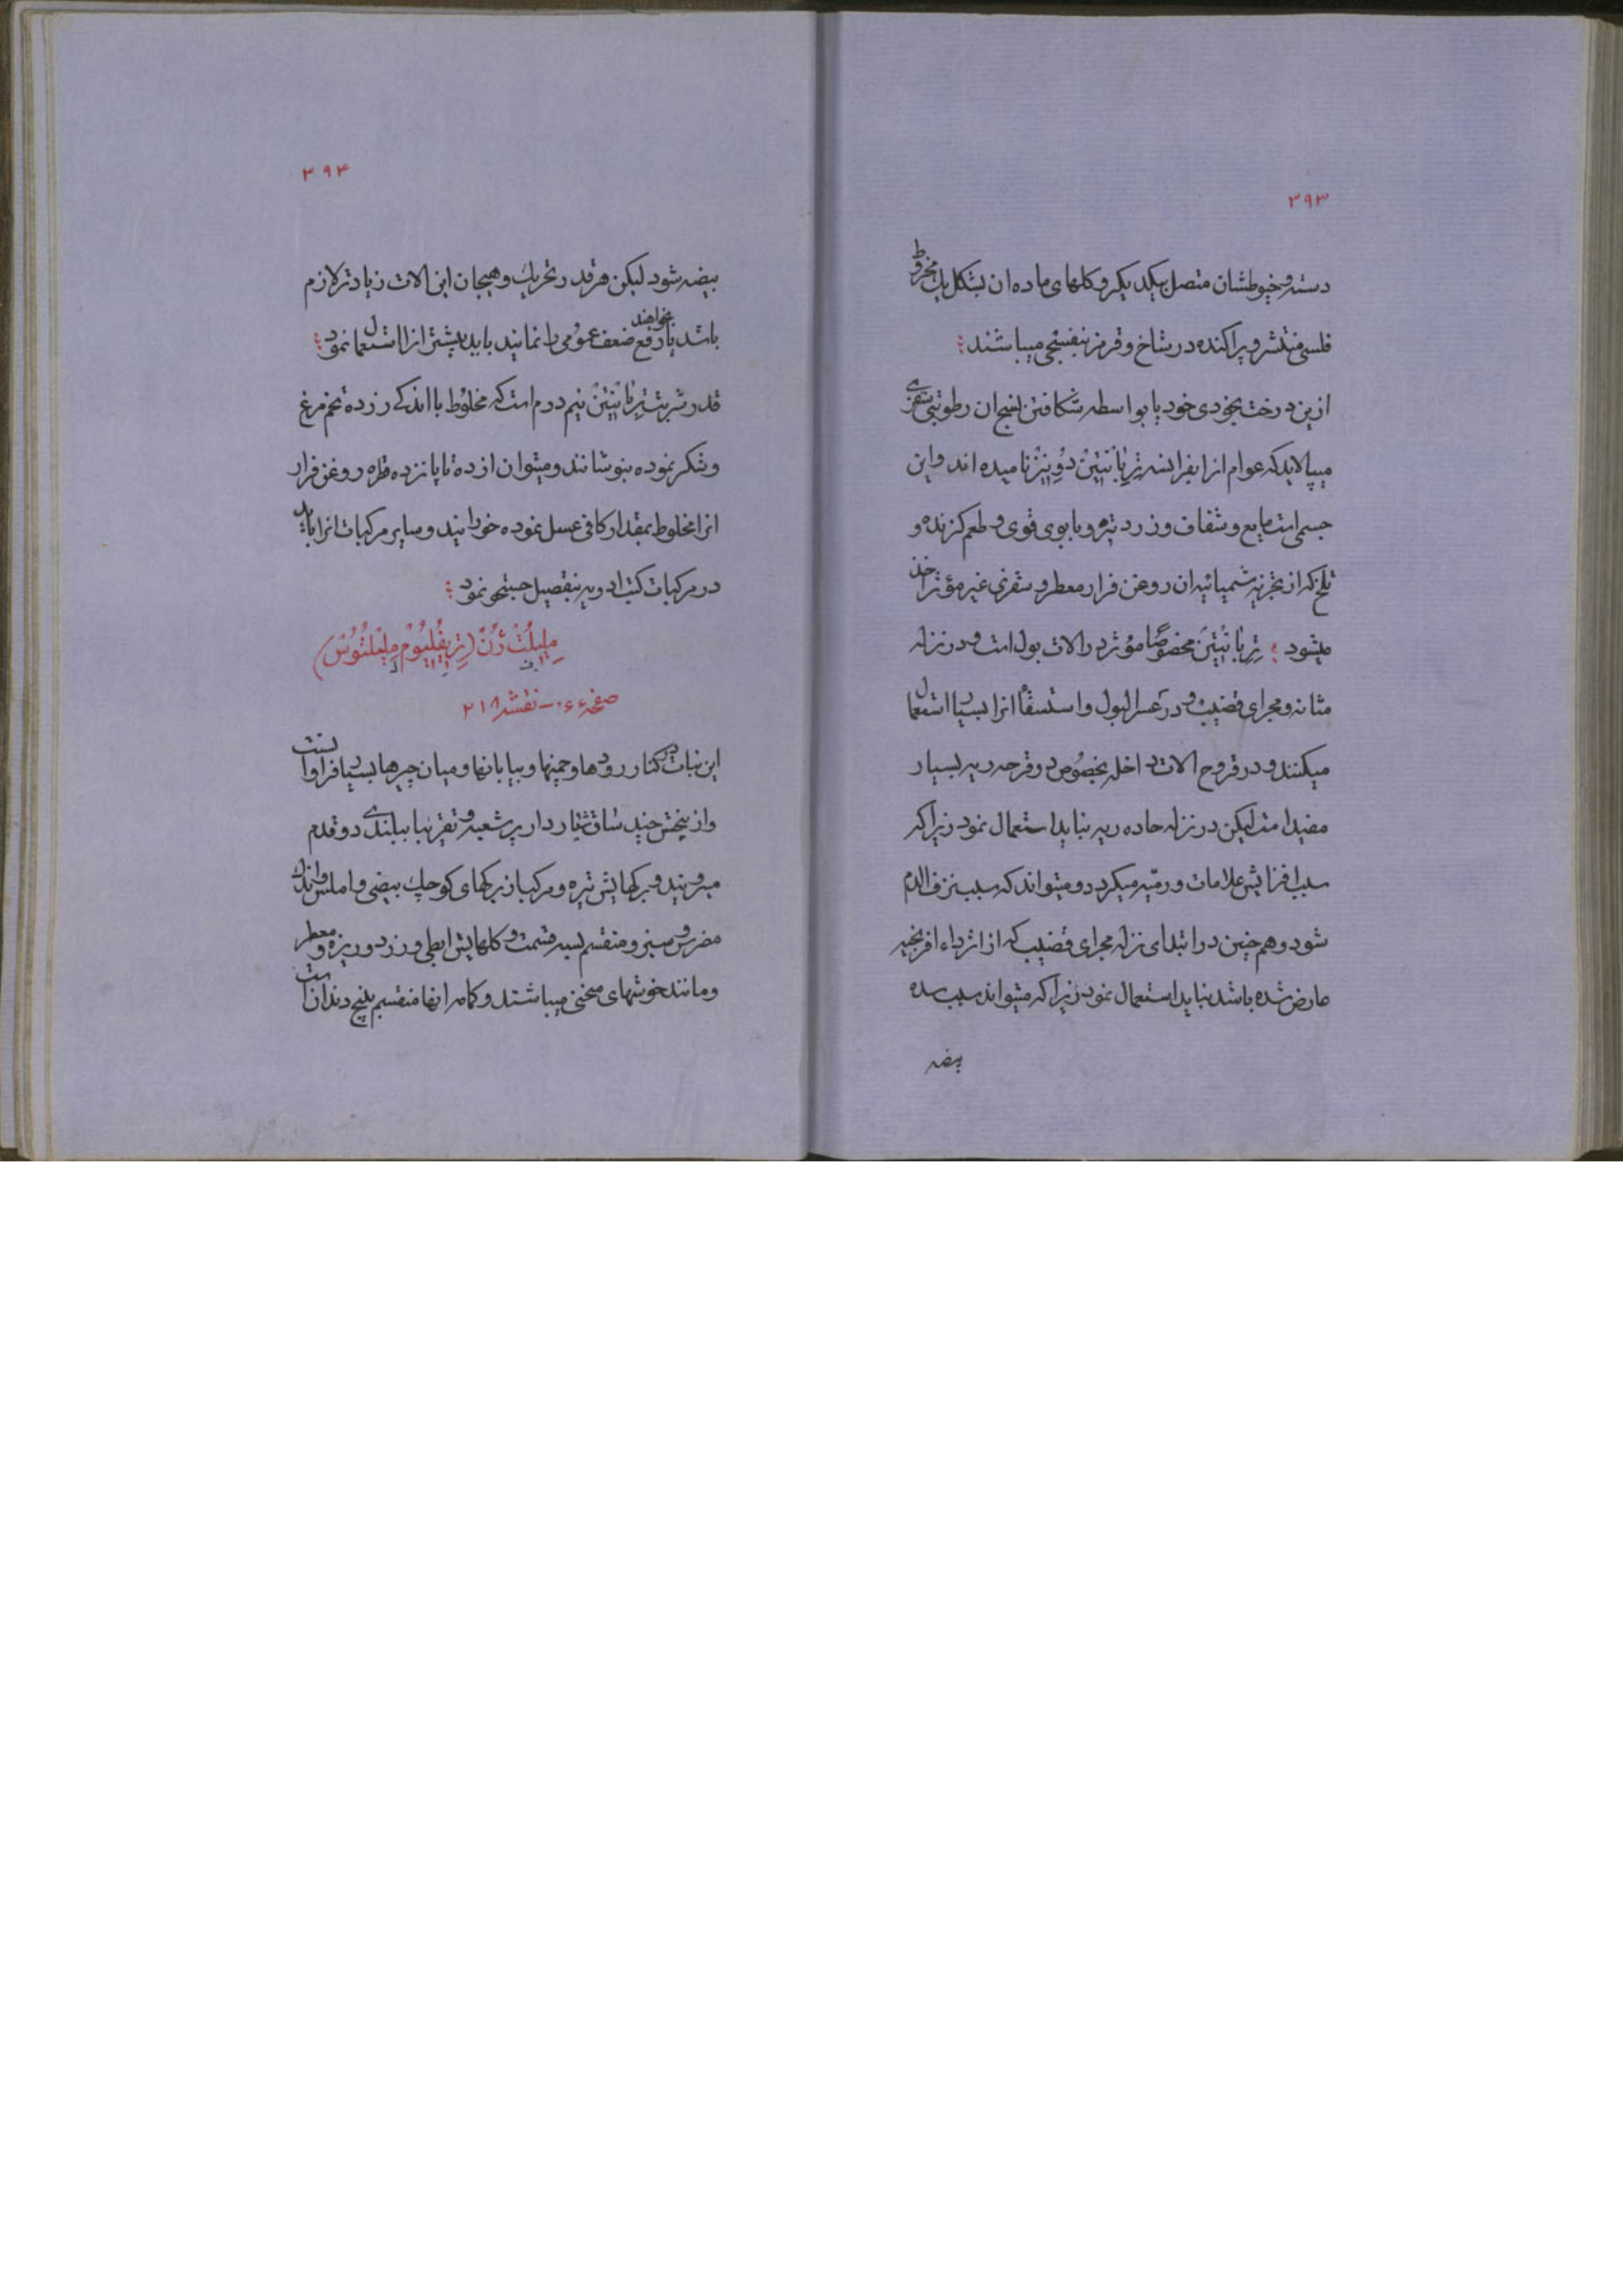 ۳۹۳
دسته و خیوطشان متصل بیکدیکر و کلهای ماده ان بشکل یک مخروط
فلسی منتشر و پراکنده در شاخ و قرمز بنفسجی میباشند
ازین درخت بخودی خود یا بواسطه شکافتن نسج ان رطوبتی سقزی
میپالاید که عوام انرا بفرانسه تِرِبانْتِینْ دُوِنِیزْ نامیده اند و این
جسمی است مایع و شفاف و زرد تیره و با بوی قوی و طعم کزنده و
تلخ که از تجزیه شمیائیه ان روغن فرار معطر و سقزی غیر مؤثر اخذ
میشود تِرِبانْتِینْ مخصوصًا مؤثر در الات بول است و در نزله
مثانه و مجرای قضیب و در عسر البول و استسقا انرا بسیار استعمال
میکنند و در قروح الات داخله بخصوص در قرحه ریه بسیار
مفید است لیکن در نزله حاده ریه نباید استعمال نمود زیرا که
سبب افزایش علامات ورمیه میکردد و میتواند که سبب نزف الدم
شود و هم چنین در ابتدای نزله مجرای قضیب که از اثر داء افرنجیه
عارض شده باشد نباید استعمال نمود زیرا که میتواند سبب سده
بیضه
۳۹۴
بیضه شود لیکن هر قدر تحریک و هیجان این الات زیادتر لازم
باشد یا بخواهند رفع ضعف عمومی را نمایند باید بیشتر انرا استعمال نمود
قدر شربت تِرِبانْتِینْ نیم درم است که مخلوط با اندکی زرده تخم مرغ
و شکر نموده بنوشانند و میتوان از ده تا پانزده قطره روغن فرار
انرا مخلوط بمقدار کافی عسل نموده خورانید و سایر مرکبات انرا باید
در مرکبات کتب ادویه بتفصیل جستجو نمود
مِلِیلُتْ ژُنْ (تِرِیفُلِیُومْ مِلِیلُتُوسْ)
صفحه ۴۰ - نقشه ۲۱۸
این نبات در کنار رودها و چمنها و بیابانها و میان چپرها بسیار فراوانست
و از بیخش چند ساق شیاردار پر شعبه و تقریبا ببلندی دو قدم
میرویند و برکهایش تیره و مرکب از برکهای کوچک بیضی و املس و اندک
مضرس و سبز و منقسم بسه قسمت و کلهایش ابطی و زرد و ریزه و معطر
و مانند خوشهای منحنی میباشند و کاسه انها منقسم بپنج دندان است